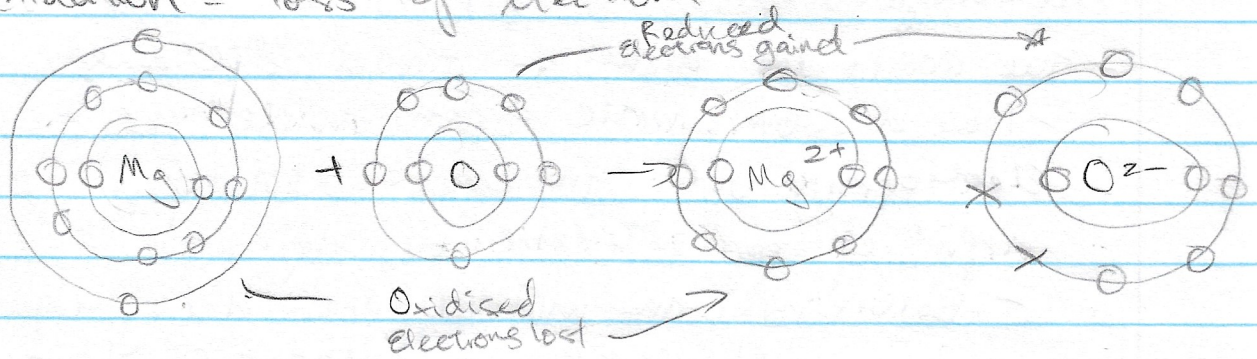 loss of
Reduced
electrons gained
Mg + O → Mg 2+ O 2-
Oxidised
electrons lost